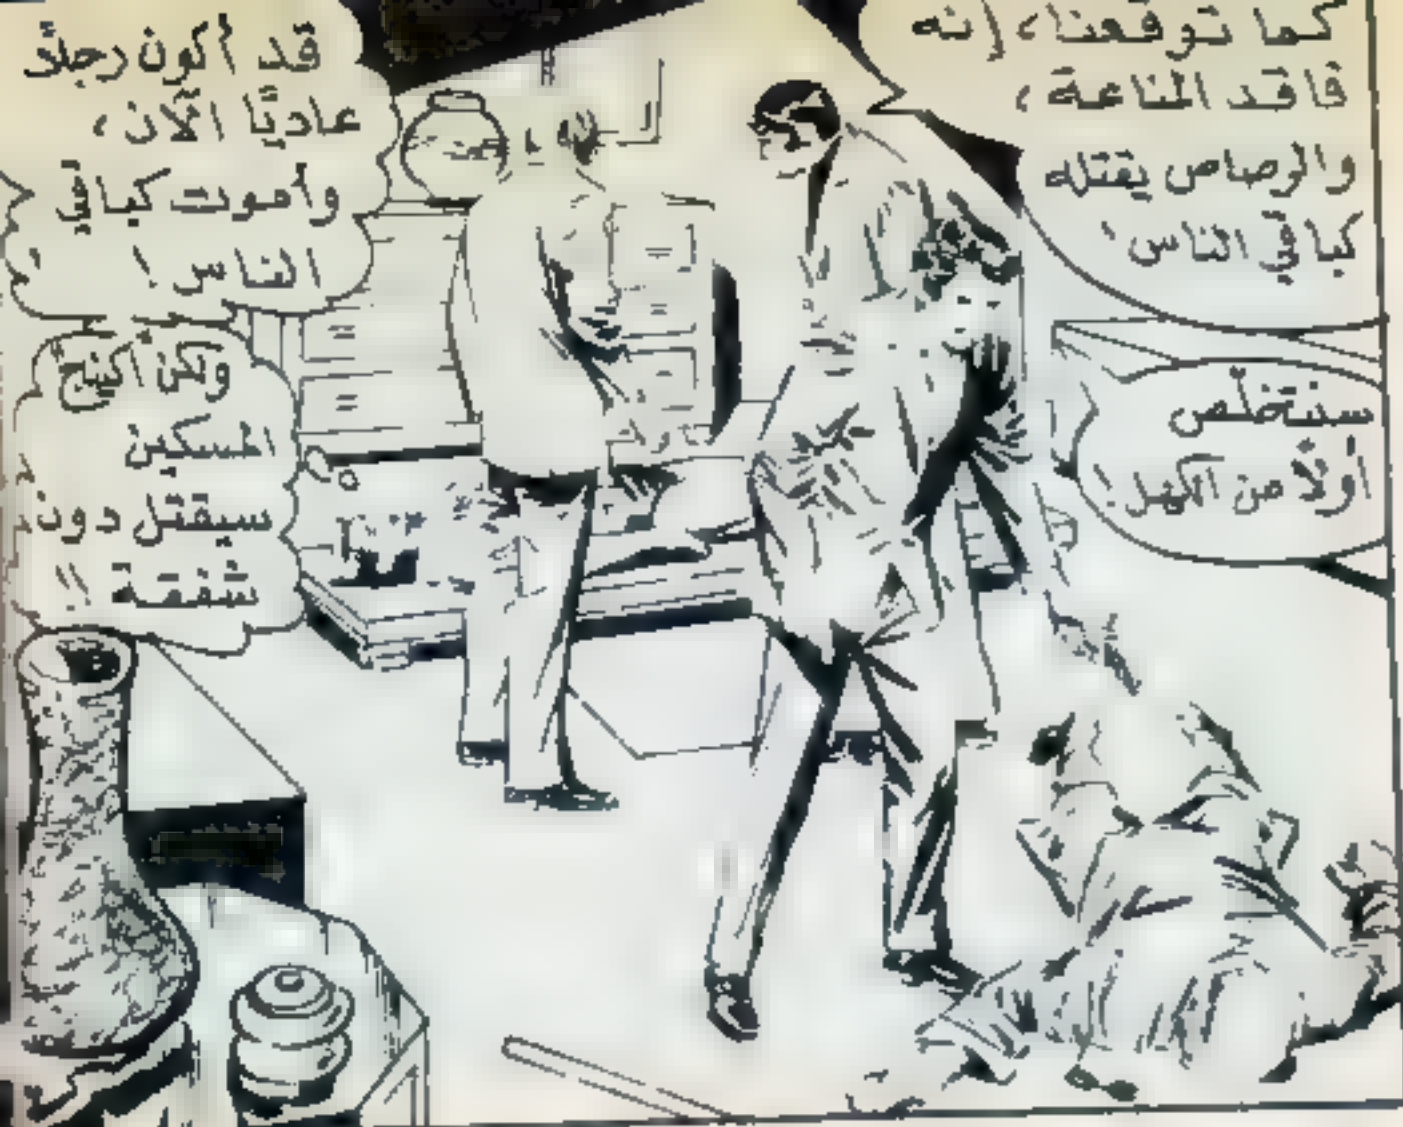 كما توقعنا، إنه
فاقد المناعة،
والرصاص يقتله
كباقي الناس!
سنتخلّص
أولًا من الكهل!
قد أكون رجلًا
عاديًا الآن،
وأموت كباقي
الناس!
ولكن
المسكين
سيقتل دون
شفقة!!